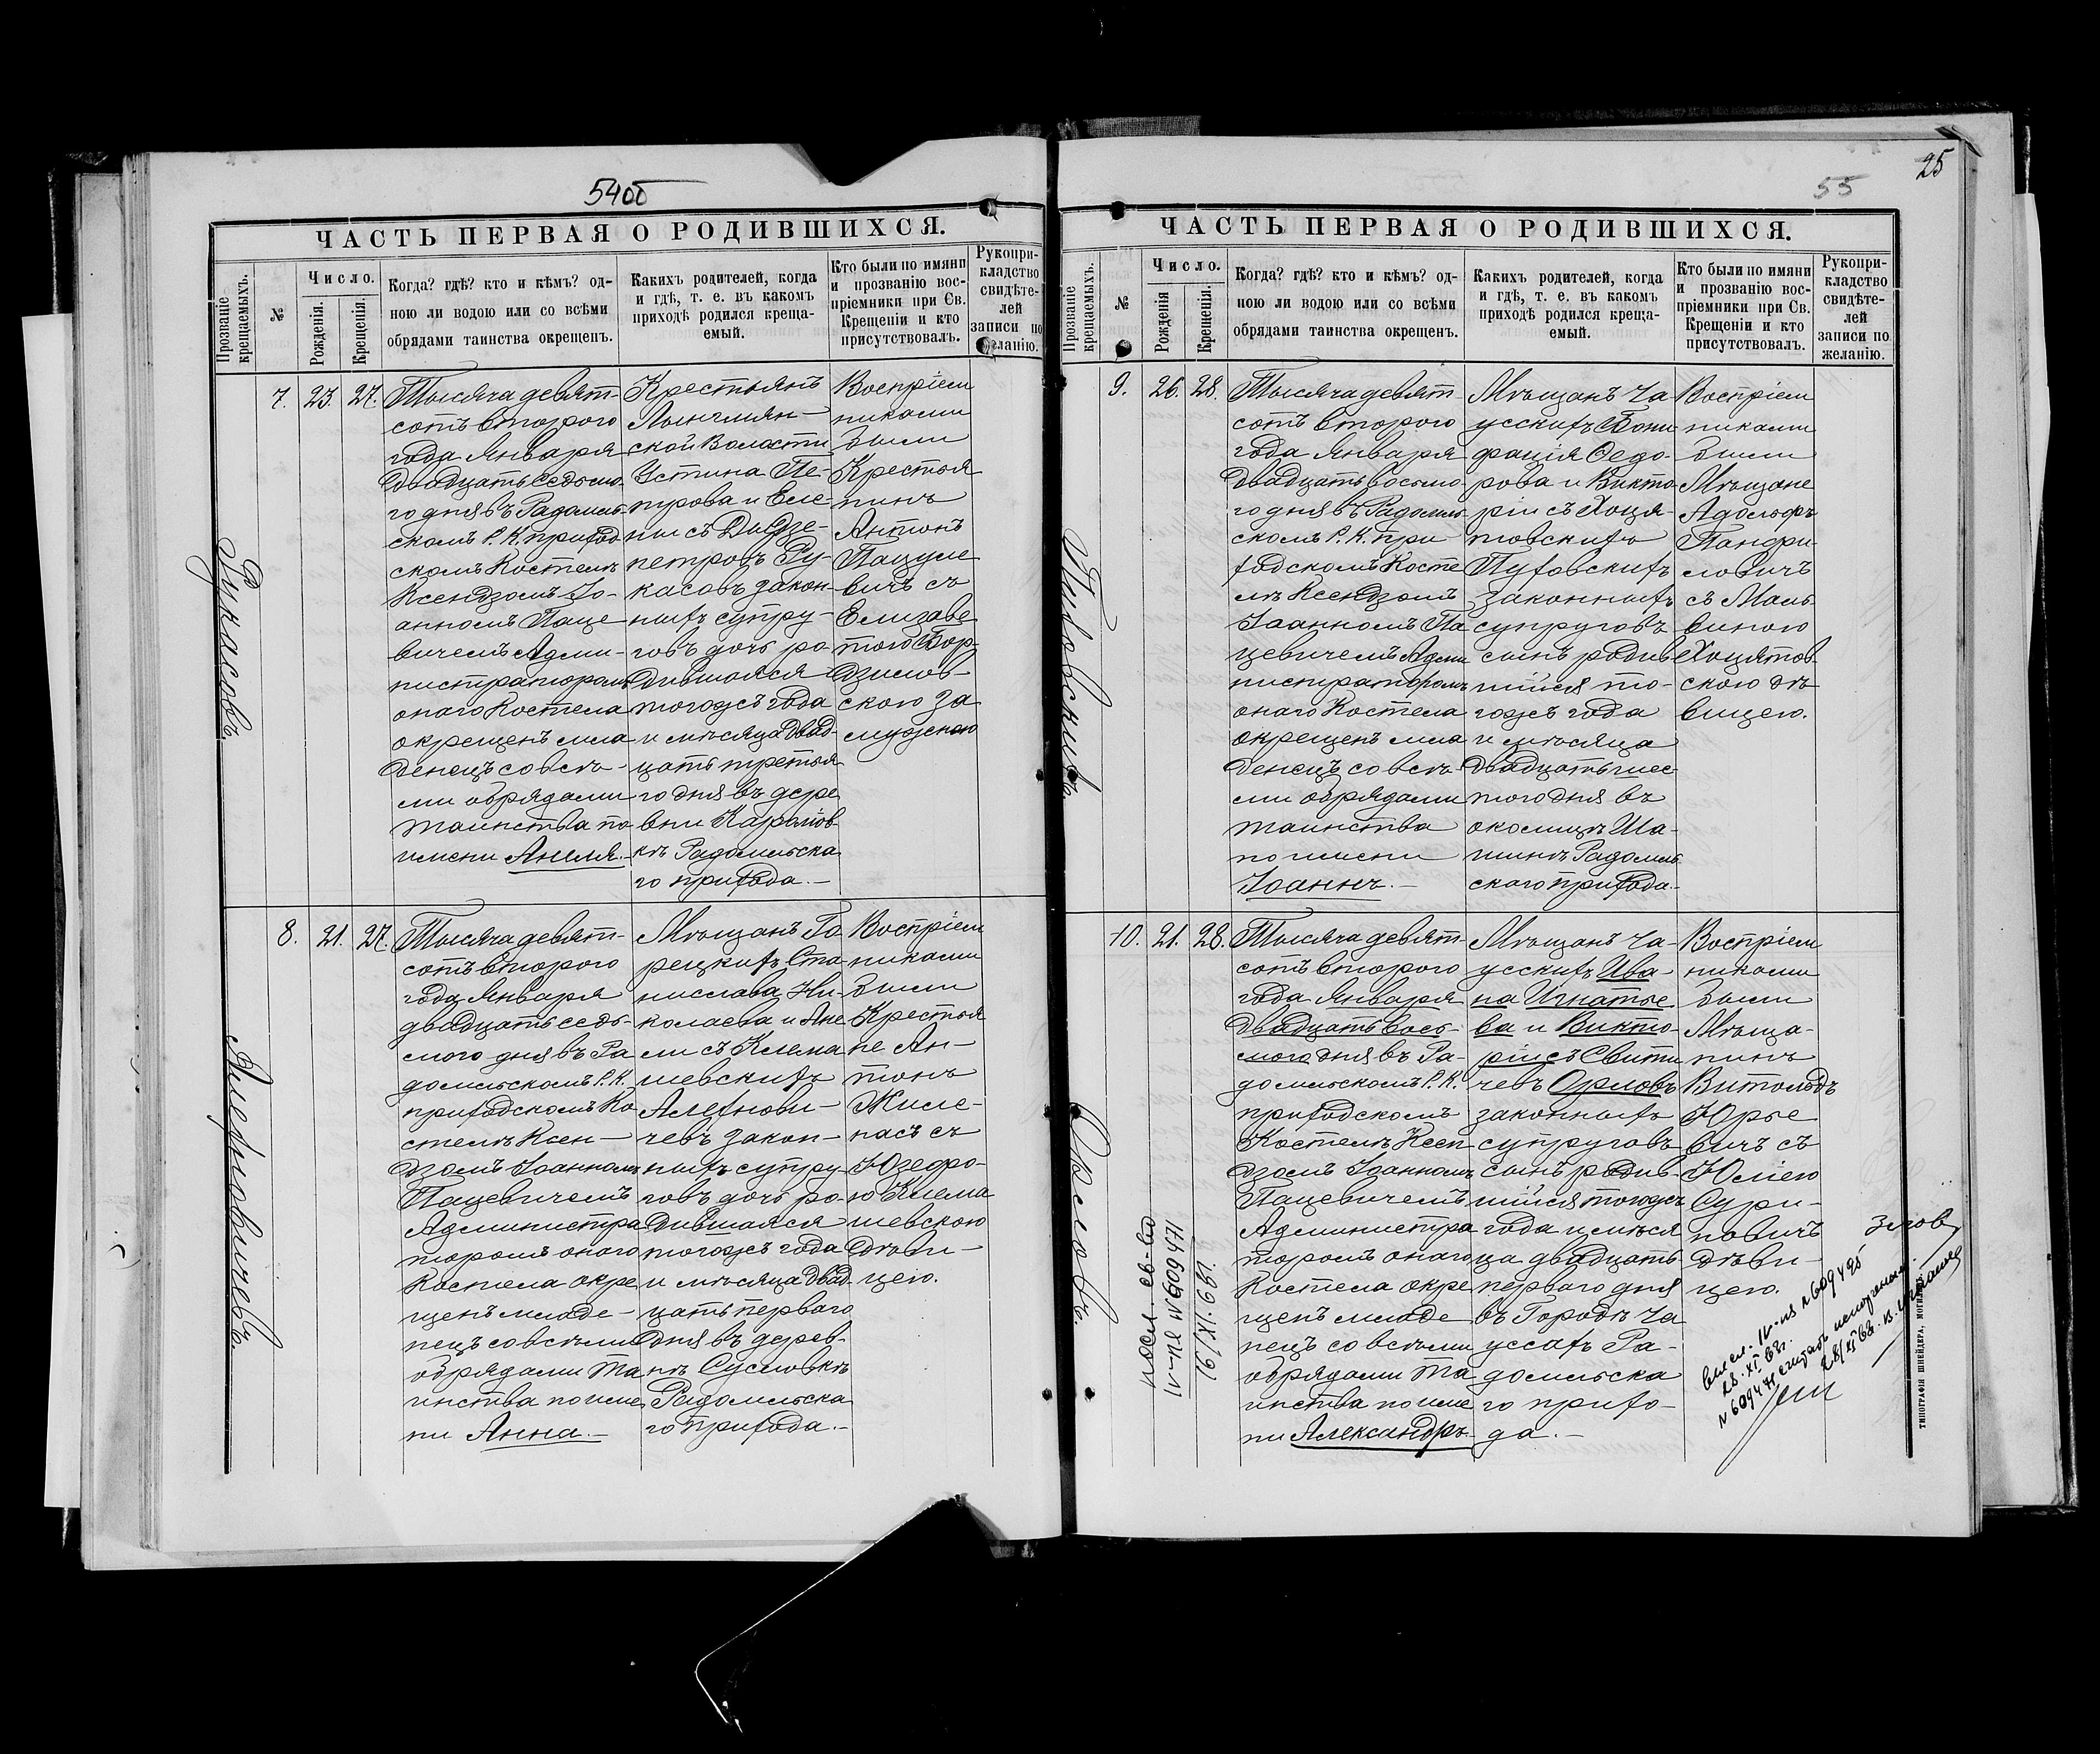 54об
ЧАСТЬ ПЕРВАЯ О РОДИВШИХСЯ.
Прозваніе крещаемыхъ.
№
Число.
Рожденія.
Крещенія.
Когда? гдѣ? кто и кѣмъ? од-
ною ли водою или со всѣми
обрядами таинства окрещенъ.
Какихъ родителей, когда
и гдѣ, т. е. въ какомъ
приходѣ родился креща-
емый.
Кто были по имяни
и прозванію вос-
пріемники при Св.
Крещеніи и кто
присутствовалъ.
Рукопри-
кладство
свидѣте-
лей
записи по
желанію.
Рукасовъ
7. 23. 27.
Тысяча девят-
сотъ второго
года Января
двадцать седьмо-
го дня въ Радомль-
скомъ Р. К. приход-
скомъ Костелѣ
Ксендзомъ Іо-
анномъ Паце
вичемъ Адми-
нистраторомъ
онаго Костела
окрещенъ мла
денецъ со всѣ-
ми обрядами
таинства по
имени Анеля.
Крестьянъ
ской Волости
Устина Пе-
трова и Еле-
ны съ
петровъ Ру-
касовъ закон-
ныхъ супру-
говъ дочь ро-
дившаяся
тогожъ года
и мѣсяца двад-
цать третья
го дня въ дере
вни
Радомльска
го прихода.-
Воспріем
никами
были
Крестья
нинъ
Антонъ
Пацуке
вичъ съ
Елизаве
тою
скою за
мужнею
Алехновичевъ.
8. 21. 27.
Тысяча девят-
сотъ второго
года Января
двадцать седь-
мого дня въ Ра
домльскомъ Р. К.
приходскомъ Ко
стелѣ Ксен-
дзомъ Іоанномъ
Пацевичемъ
Администра
торомъ онаго
Костела окре
щенъ младе-
нецъ со всѣми
обрядами та
инства по име
ни Анна.-
Мѣщанъ Го
рецкихъ Ста-
нислава Ни-
колаева и Ане
ли съ Клема
шевскихъ
Алехнови-
чевъ закон-
ныхъ супру-
говъ дочь ро-
дившаяся
тогожъ года
и мѣсяца двад
цать перваго
дня въ дерев-
нѣ Сусловкѣ
Радомльска
го прихода.-
Воспріем
никами
были
Крестья
не Ан-
тонъ
Жиле-
насъ съ
Юзефо-
ю Клема
шевскою
дѣви-
цею.
25
55
ЧАСТЬ ПЕРВАЯ О РОДИВШИХСЯ.
Прозваніе крещаемыхъ.
№
Число.
Рожденія
Крещенія.
Когда? гдѣ? кто и кѣмъ? од-
ною ли водою или со всѣми
обрядами таинства окрещенъ.
Какихъ родителей, когда
и гдѣ, т. е. въ какомъ
приходѣ родился креща-
емый.
Кто были по имяни
и прозванію вос-
пріемники при Св.
Крещеніи и кто
присутствовалъ.
Рукопри-
кладство
свидѣте-
лей
записи по
желанію.
9. 26. 28.
Тысяча девят-
сотъ второго
года Января
двадцать восьмо-
го дня въ Радомль-
скомъ Р. К. при
ходскомъ Косте
лѣ Ксендзомъ
Іоанномъ Па
цевичемъ Адми
нистраторомъ
онаго Костела
окрещенъ мла
денецъ со всѣ-
ми обрядами
таинства
по имени
Іоаннъ.-
Мѣщанъ Ча
усскихъ Бони
фація Ѳедо-
рова и Викто
ріи съ Хоця-
товскихъ
законныхъ
супруговъ
сынъ родив
шійся то-
гожъ года
и мѣсяца
двадцать шес-
того дня въ
околицѣ Ша-
Радомль
скаго прихода.
Воспріем
никами
были
Мѣщане
Адольфъ
Панфи-
ловичъ
съ Маль-
виною
Хоцятов-
скою дѣ
вицею.
Орловъ.
10. 21. 28.
Тысяча девят-
сотъ второго
года Января
двадцать вось-
мого дня въ Ра-
домльскомъ Р. К.
приходскомъ
Костелѣ Ксен
дзомъ Іоанномъ
Пацевичемъ
Администра
торомъ онаго
Костела окре
щенъ младе
нецъ со всѣми
обрядами та
инства по име
ни Александръ.
Мѣщанъ Ча-
усскихъ Ива-
на Игнатье
ва и Викто-
ріи съ Свити
чевъ Орловъ
законныхъ
супруговъ
сынъ родив-
шійся тогожъ
года и мѣся
ца двадцать
перваго дня
въ Городѣ Ча
уссахъ Ра-
домльска
го прихо-
да.-
Воспріем
никами
были
Мѣща-
нинъ
Витольдъ
Юрье
вичъ съ
Юліею
Сури-
новичъ
дѣви-
цею.
св-во
IV-ПЯ №609471
19/XI.68г
IV-ПЯ №609495
28.XI.68г.
№609471 считать
28/XI 68г.
ТИПОГРАФІЯ ШНЕЙДЕРА, МОГИЛЕВЪ.